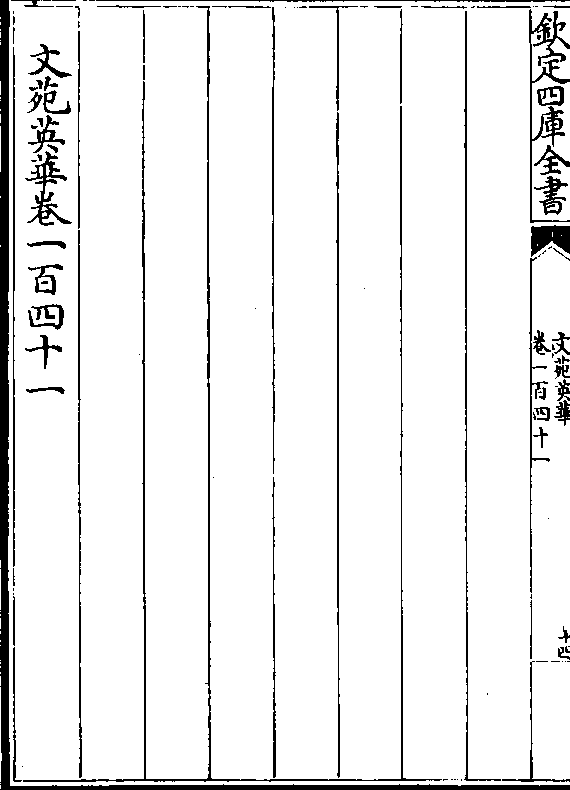 欽定四庫全書
文苑英華
卷一百四十一
十四
文苑英華卷一百四十一